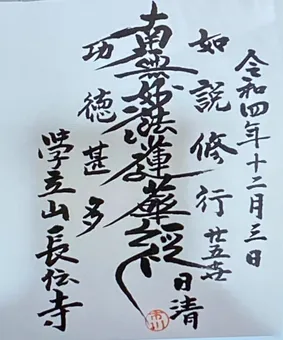 令和四年十二月三日
如説修行
廿五世
日清
南無妙法蓮華経
功徳甚多
學立山長伝寺